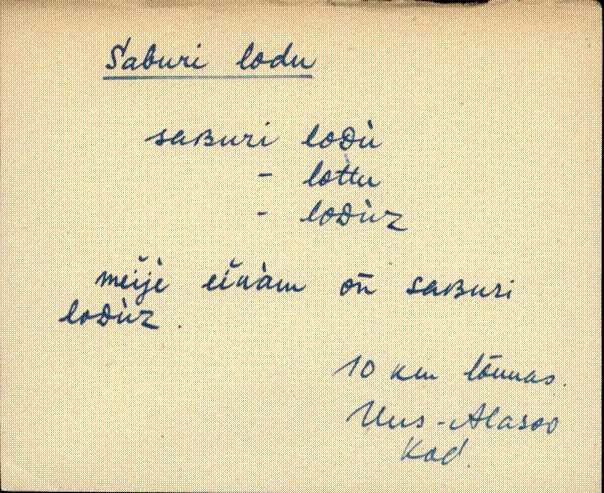 Saburi lodu
saʙuri loᴅù
- lottu
- loᴅùz
meije einàm on saʙuri
loᴅùz.
10 km lõunas.
Uus-Alasoo
Kod.